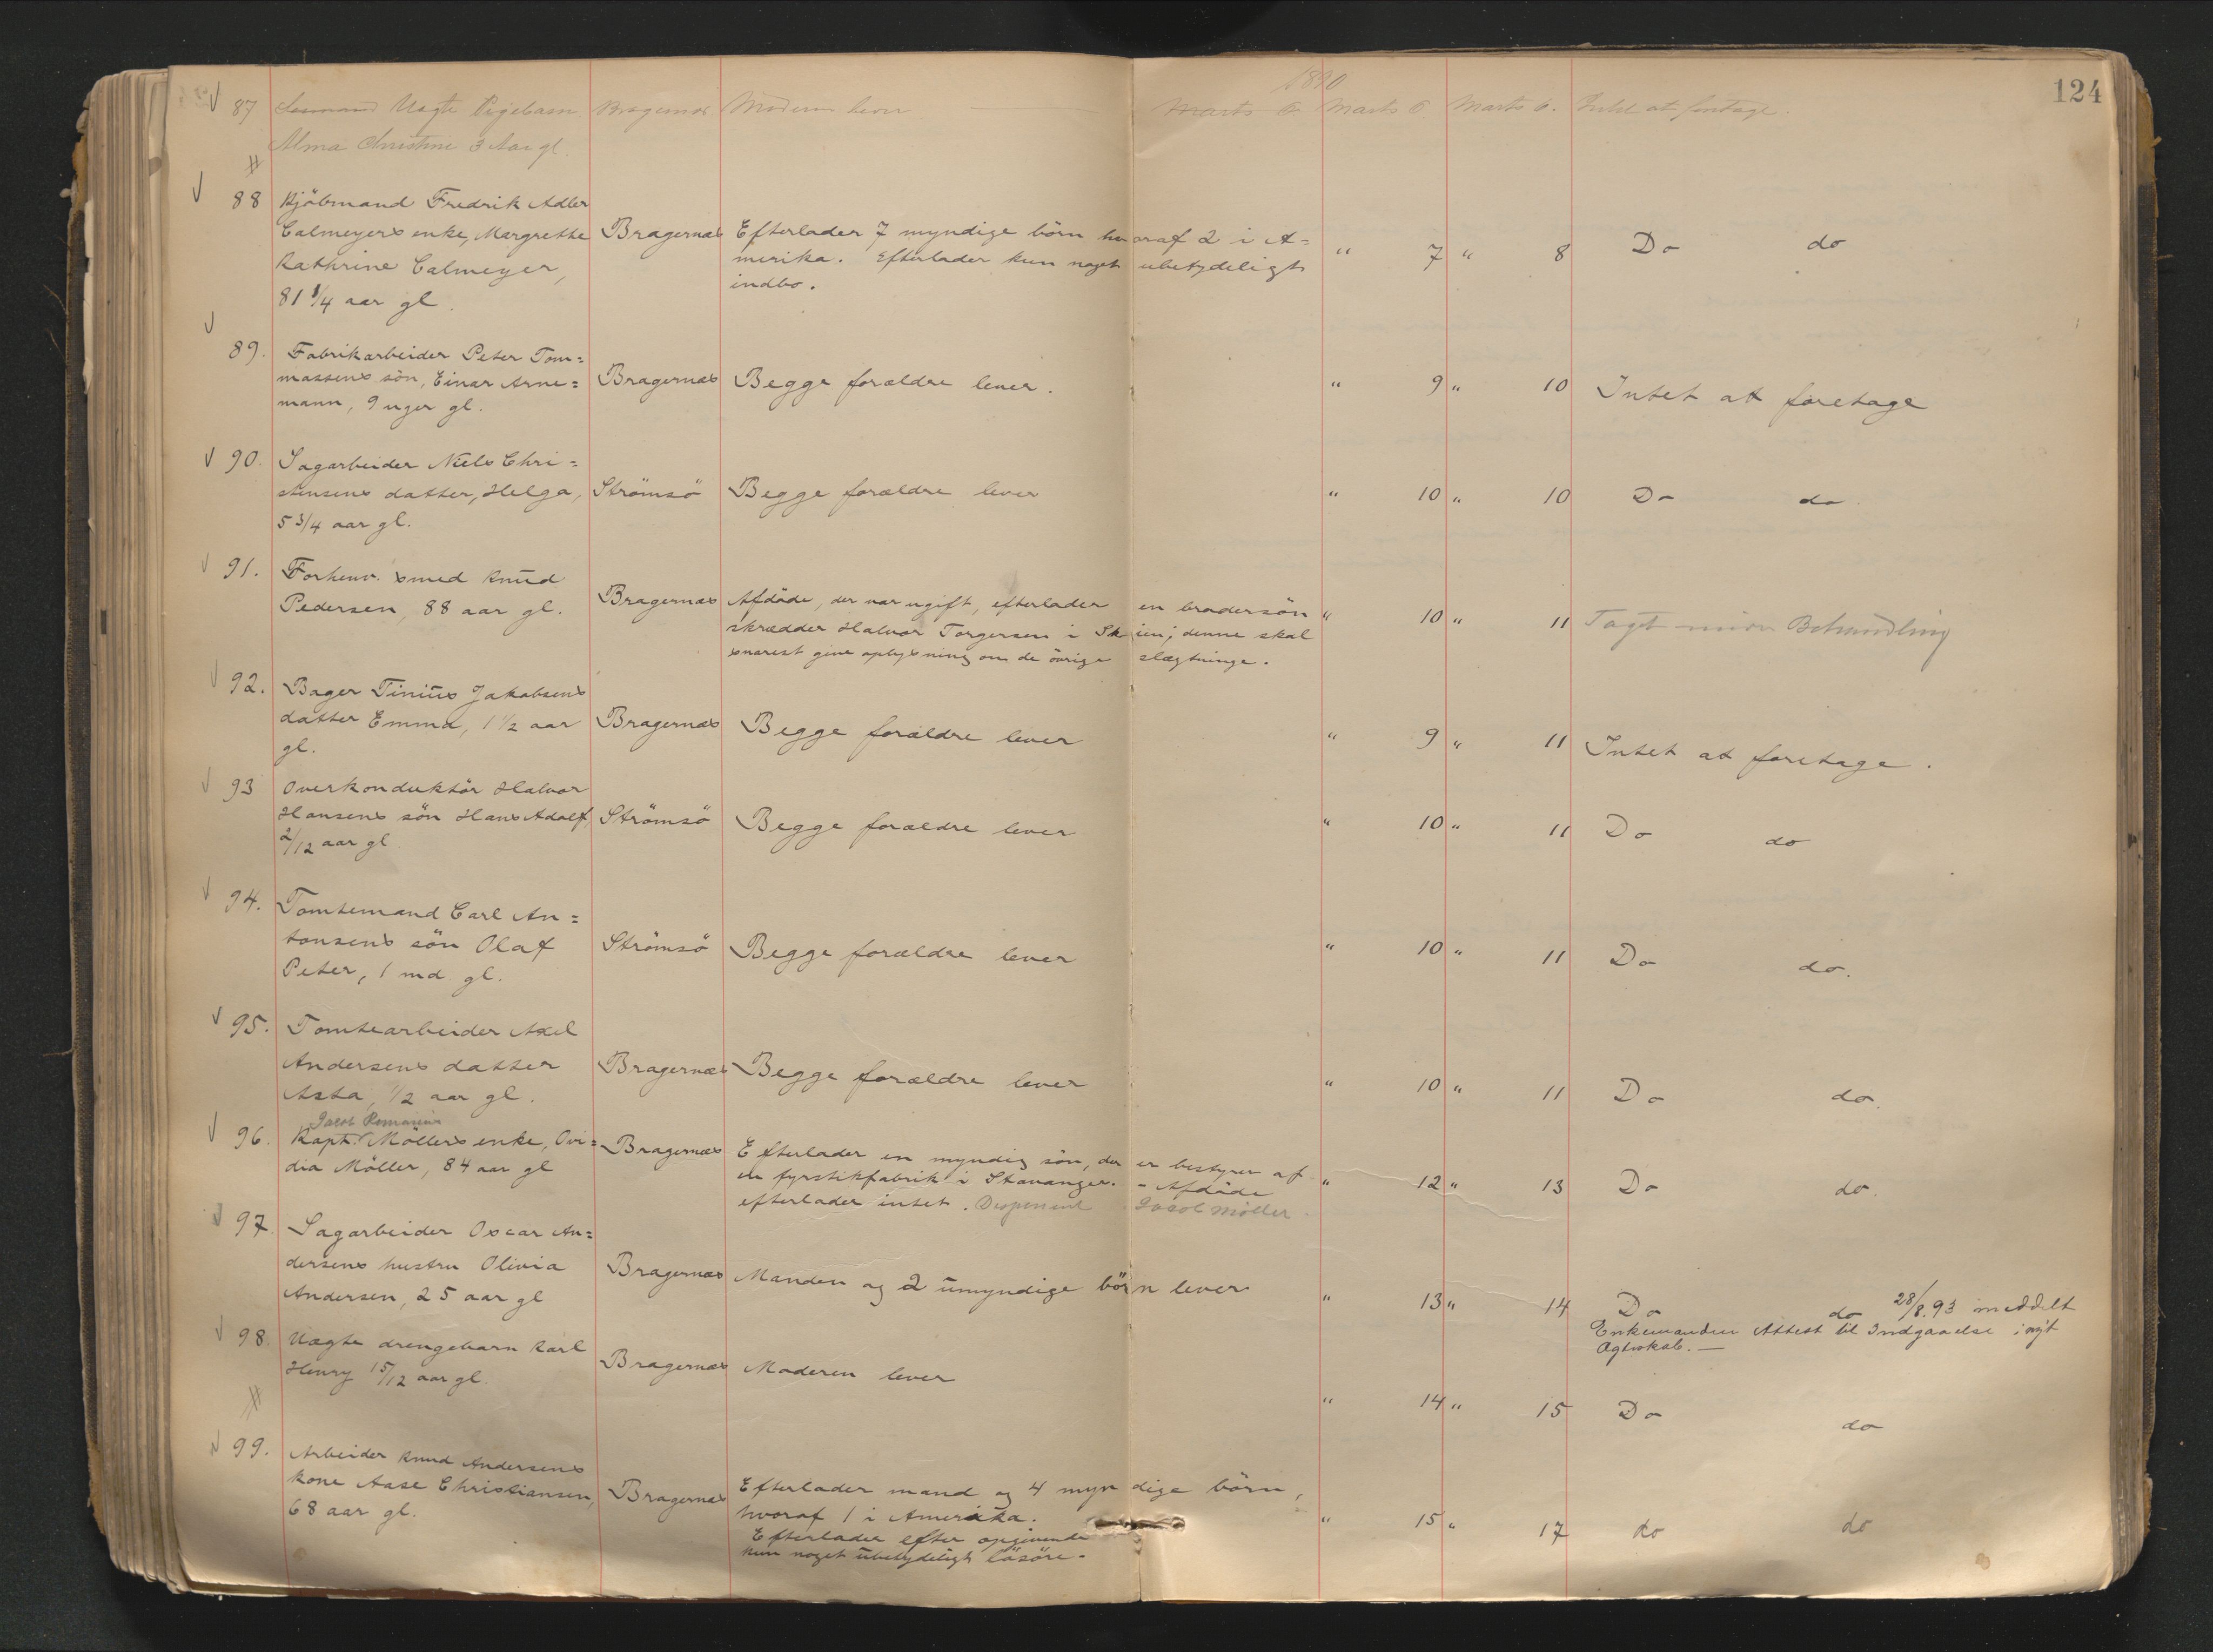 124
1890
87 Uægte Pigebarn Bragernæs Moderen lever Marts 6 Marts 6 Marts 6. Intet at foretage.
Alma Christine 3 Aar gl.
88 Kjöbmand Fredrik Adler
Calmeyers enke, Margrethe
Kathrine Calmeyer,
81 1/4 aar gl.
Bragernæs
Efterlader 7 myndige börn hvoraf 2 i A=
merika. Efterlader kun noget ubetydeligt
indbo.
" 7 " 8 Do do
89. Fabrikarbeider Peter Tom=
massens sön, Einar Arne=
mann, 9 uger gl.
Bragernæs Begge forældre lever. " 9 " 10 Intet at foretage
90. Sagarbeider Niels Chri=
stensens datter, Helga,
5 3/4 aar gl.
Strömsö Begge forældre lever " 10 " 10 Do do
91. Forhenv. smed Knud
Pedersen, 88 aar gl.
Bragernæs
Afdöde, der var ugift, efterlader en brodersön
skrædder Halvor Torgersen i Skien; denne skal
snarest give oplysning om de övrige slægtninge.
" 10 " 11 Taget under Behandling
92. Bager Tinius Jakobsens
datter Emma, 1 1/2 aar
gl.
Bragernæs Begge forældre lever " 9 " 11 Intet at foretage.
93 Overkonduktör Halvor
Hansens sön Hans Adolf,
2/12 aar gl
Strömsö Begge forældre lever " 10 " 11 Do do
94. Tomtemand Carl An=
tonsens sön Olaf
Peter, 1 md. gl.
Strömsö Begge forældre lever " 10 " 11 Do do.
95. Tomtearbeider Axel
Andersens datter
Asta, 1/2 aar gl.
Bragernæs Begge forældre lever " 10 " 11 Do do.
Jacob
96. Kapt. Möllers enke, Ovi=
dia Möller, 84 aar gl
Bragernæs
Efterlader en myndig sön, der er bestyrer af
en fyrstikfabrik i Stavanger. - Afdöde
efterlader intet. Disponent Jacob Möller
" 12 " 13 Do do.
97. Sagarbeider Oscar An=
dersens hustru Olivia
Andersen, 25 aar gl
Bragernæs Manden og 2 umyndige börn lever " 13 " 14 Do do 28/8.93 meddelt
Enkemanden Attest til Indgaaelse i nyt
Ægteskab. —
98. Uægte drengebarn Karl
Henry 15/12 aar gl.
Bragernæs Moderen lever " 14 " 15 Do do
99. Arbeider Knud Andersens
kone Aase Christiansen,
68 aar gl.
Bragernæs
Efterlader mand og 4 myndige börn,
hvoraf 1 i Amerika.
Efterlader efter opgivende
kun noget ubetydeligt lösöre.
" 15 " 17 do do